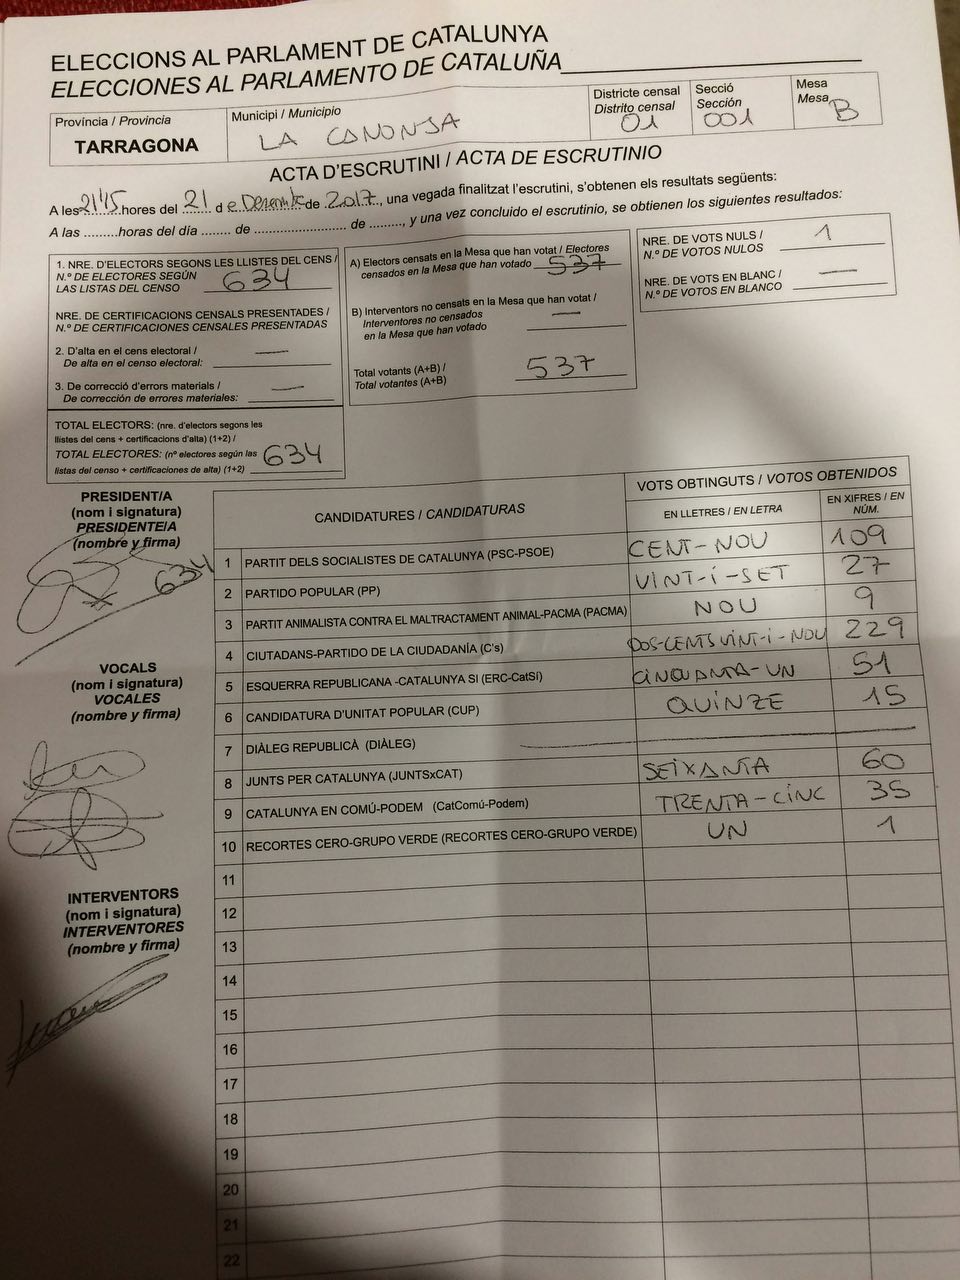 ELECCIONS AL PARLAMENT DE CATALUNYA
ELECCIONES AL PARLAMENTO DE CATALUÑA
Província / Provincia
TARRAGONA
Municipi / Municipio
LA CANONJA
Districte censal
Distrito censal
01
Secció
Sección
001
Mesa
Mesa
B
ACTA D'ESCRUTINI / ACTA DE ESCRUTINIO
A les 21'15 hores del 21 de Desembre de 2017, una vegada finalitzat l'escrutini, s'obtenen els resultats següents:
A las .........horas del día ........ de ........................ de ........., y una vez concluido el escrutinio, se obtienen los siguientes resultados:
1. NRE. D'ELECTORS SEGONS LES LLISTES DEL CENS /
N.º DE ELECTORES SEGÚN
LAS LISTAS DEL CENSO 634
NRE. DE CERTIFICACIONS CENSALS PRESENTADES /
N.º DE CERTIFICACIONES CENSALES PRESENTADAS
2. D'alta en el cens electoral /
De alta en el censo electoral: —
3. De correcció d'errors materials /
De corrección de errores materiales: —
TOTAL ELECTORS: (nre. d'electors segons les
llistes del cens + certificacions d'alta) (1+2) /
TOTAL ELECTORES: (nº electores según las
listas del censo + certificaciones de alta) (1+2) 634
A) Electors censats en la Mesa que han votat / Electores
censados en la Mesa que han votado 537
B) Interventors no censats en la Mesa que han votat /
Interventores no censados
en la Mesa que han votado —
Total votants (A+B) /
Total votantes (A+B) 537
NRE. DE VOTS NULS /
N.º DE VOTOS NULOS 1
NRE. DE VOTS EN BLANC /
N.º DE VOTOS EN BLANCO —
PRESIDENT/A
(nom i signatura)
PRESIDENTE/A
(nombre y firma)
634
VOCALS
(nom i signatura)
VOCALES
(nombre y firma)
INTERVENTORS
(nom i signatura)
INTERVENTORES
(nombre y firma)
CANDIDATURES / CANDIDATURAS
VOTS OBTINGUTS / VOTOS OBTENIDOS
EN LLETRES / EN LETRA
EN XIFRES / EN
NÚM.
1 PARTIT DELS SOCIALISTES DE CATALUNYA (PSC-PSOE) CENT-NOU 109
2 PARTIDO POPULAR (PP) VINT-I-SET 27
3 PARTIT ANIMALISTA CONTRA EL MALTRACTAMENT ANIMAL-PACMA (PACMA) NOU 9
4 CIUTADANS-PARTIDO DE LA CIUDADANÍA (C's) DOS-CENTS VINT-I-NOU 229
5 ESQUERRA REPUBLICANA -CATALUNYA SÍ (ERC-CatSí) CINQUANTA-UN 51
6 CANDIDATURA D'UNITAT POPULAR (CUP) QUINZE 15
7 DIÀLEG REPUBLICÀ (DIÀLEG)
8 JUNTS PER CATALUNYA (JUNTSxCAT) SEIXANTA 60
9 CATALUNYA EN COMÚ-PODEM (CatComú-Podem) TRENTA-CINC 35
10 RECORTES CERO-GRUPO VERDE (RECORTES CERO-GRUPO VERDE) UN 1
11
12
13
14
15
16
17
18
19
20
21
22